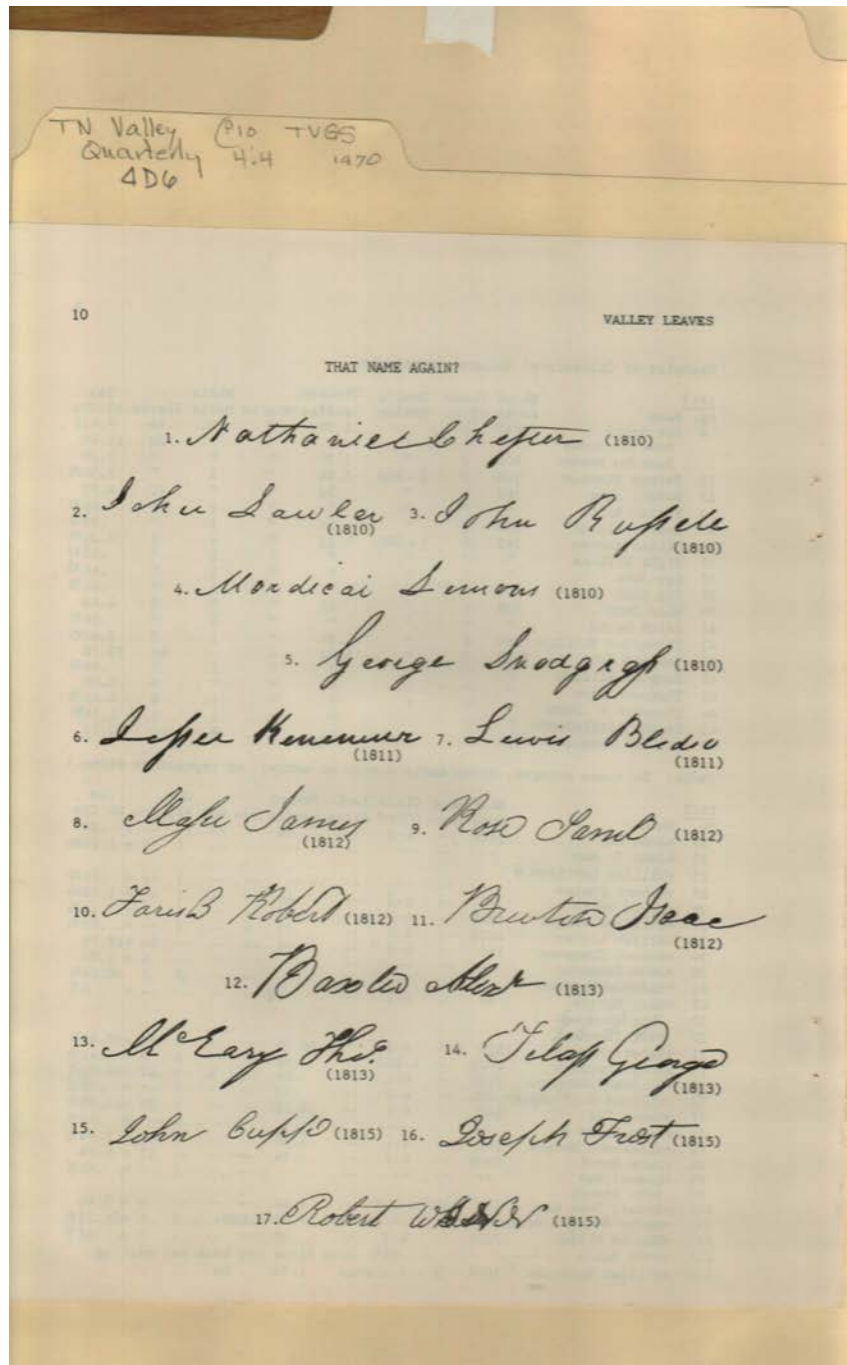 TN Valley P10 TVGS
Quarterly 4:4 1970
4D6
10 VALLEY LEAVES
THAT NAME AGAIN?
1. Nathaniel Chesser (1810)
2. John Lawler (1810) 3. John Russell (1810)
4. Mordicai Lemons (1810)
5. George Snodgrass (1810)
6. Jessee (1811) 7. Lewis Bledso (1811)
8. James (1812) 9. Rose Saml (1812)
10. Robert (1812) 11. Isaac (1812)
12. Alexr (1813)
13. Thos. (1813) 14. George (1813)
15. John Cupp (1815) 16. Joseph Frost (1815)
17. Robert (1815)